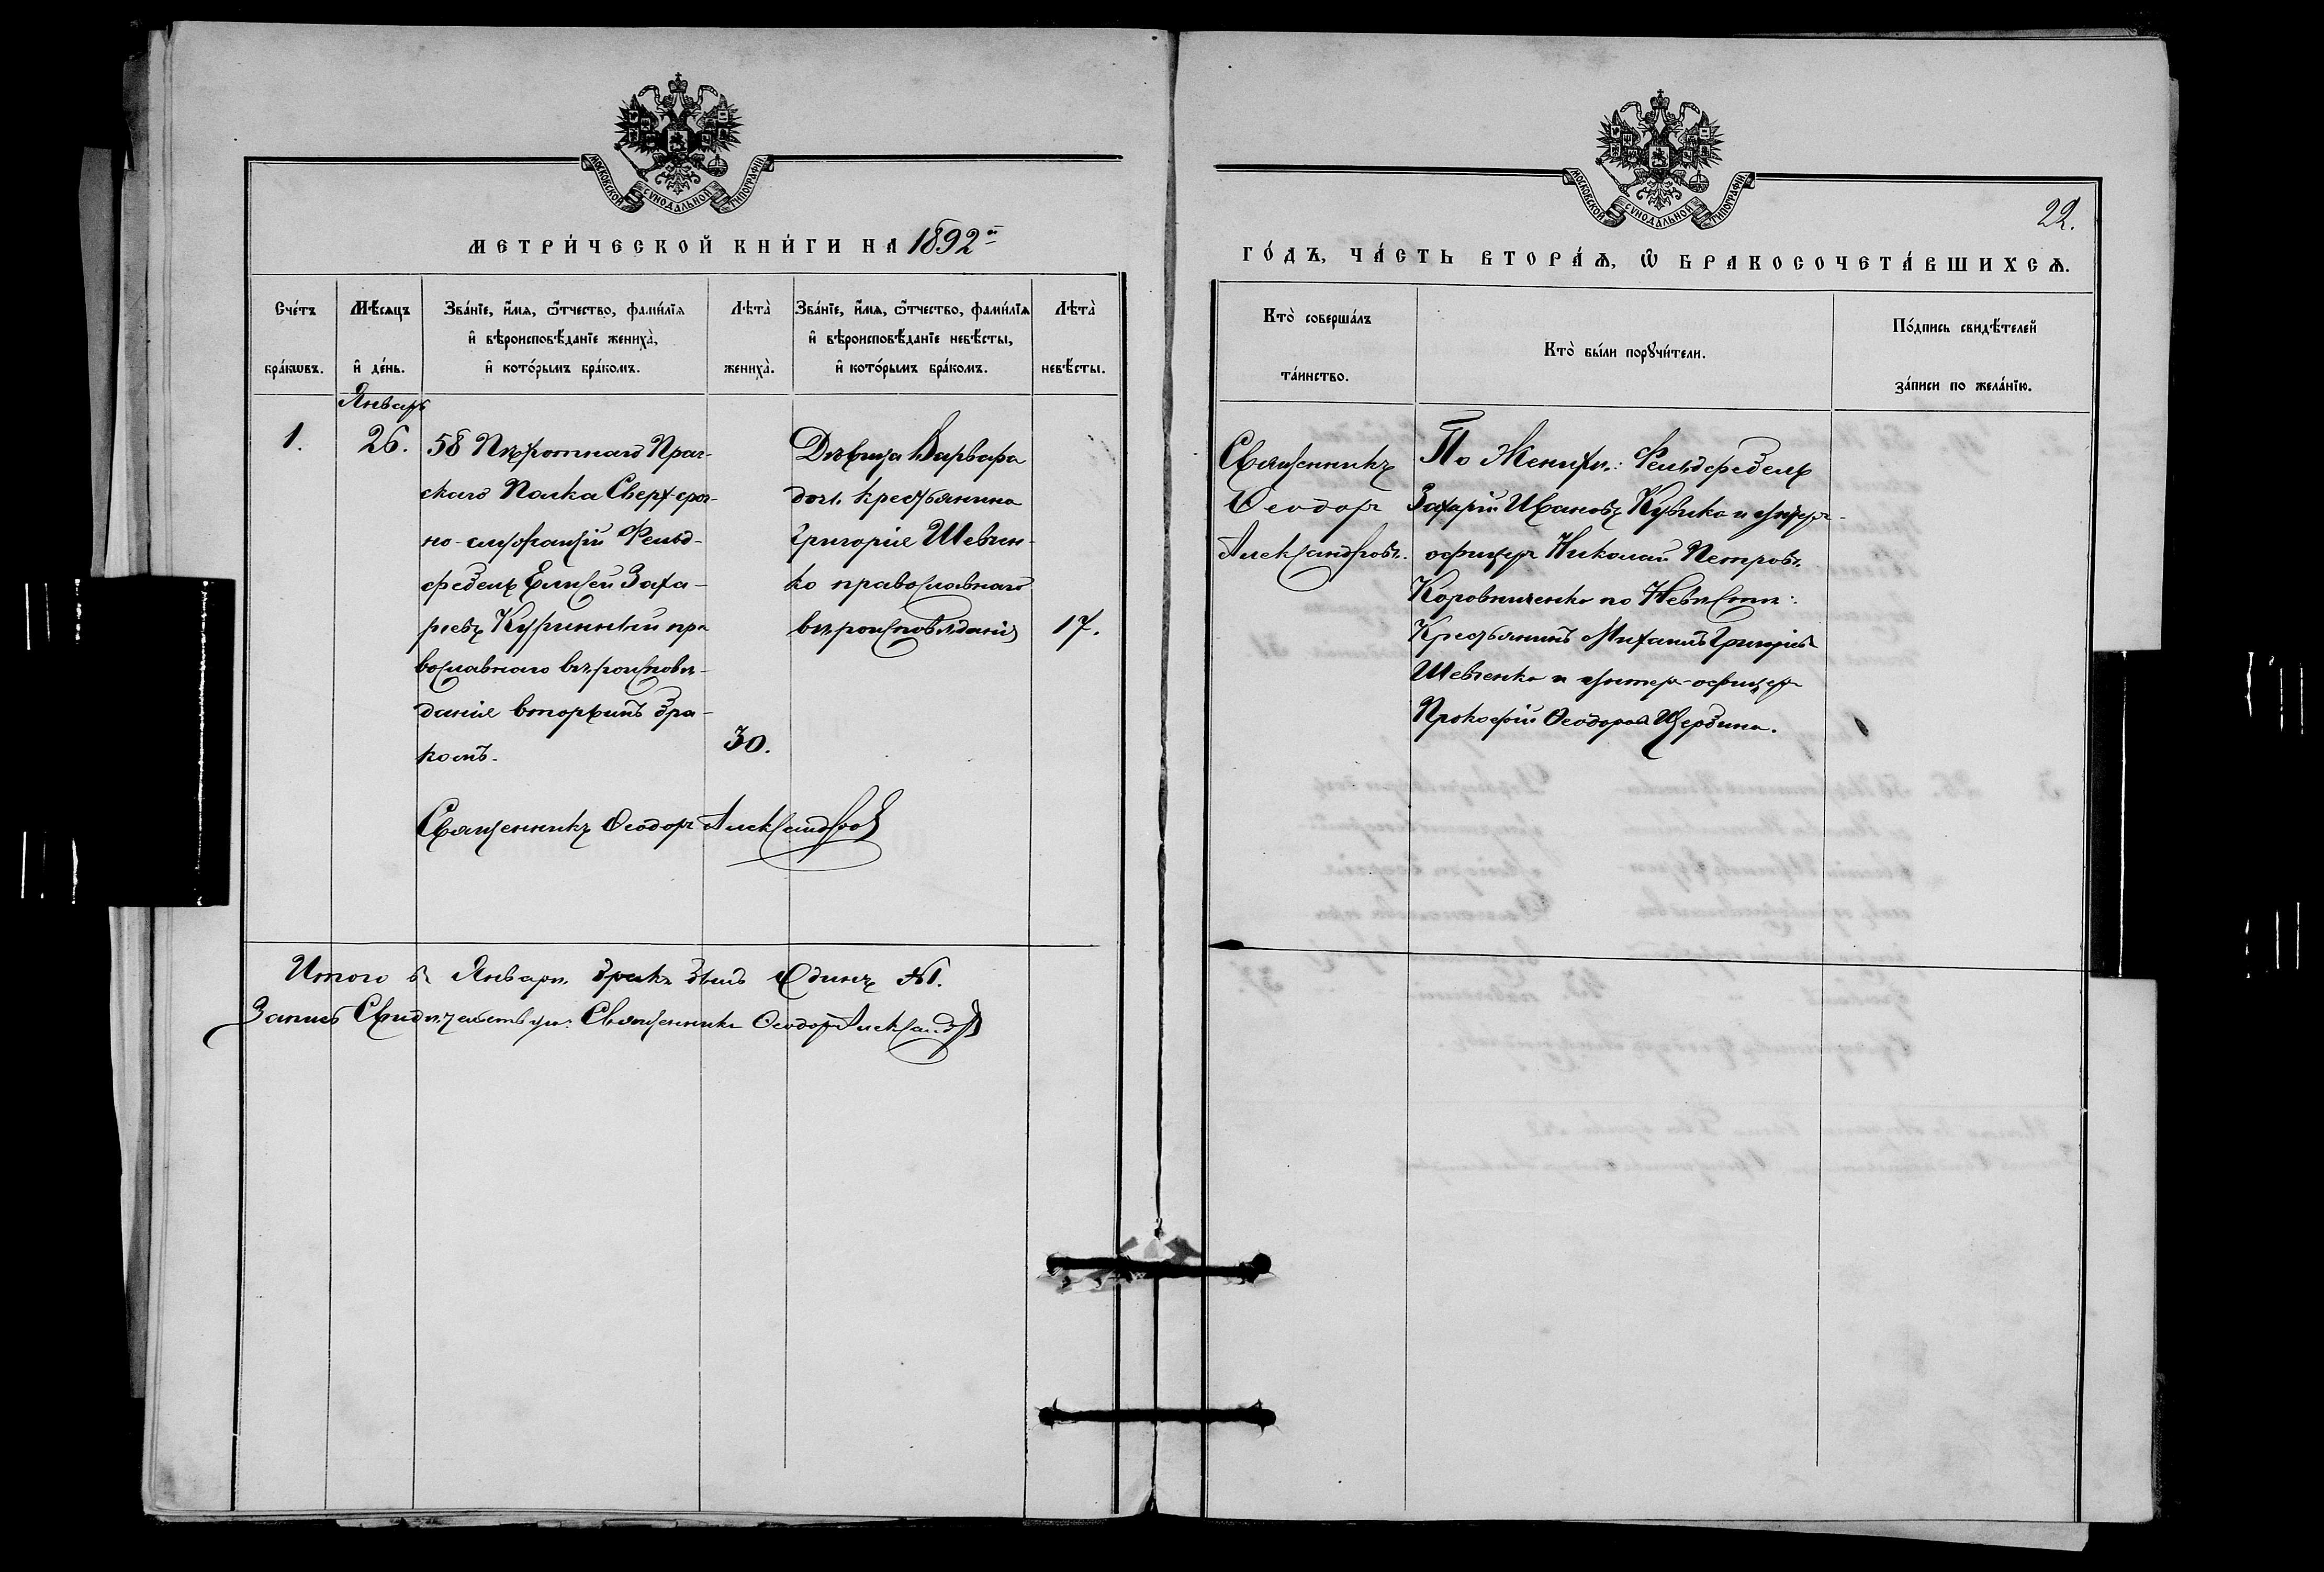 МОСКОВСКОЙ СУНОДАЛЬНОЙ ТИПОГРАФІИ
МЕТРИ́ЧЕСКОЙ КНИ́ГИ НА 1892й
Сче́тъ бра́кωвъ.
Мѣ́сяцъ и҆ де́нь.
Зва́нїе, и҆́мя, ѻ҆́тчество, фами́лїя
и҆ вѣроисповѣ́данїе жениха̀,
и҆ кото́рымъ бра́комъ.
Лѣта̀ жениха̀.
Зва́нїе, и҆́мя, ѻ҆́тчество, фами́лїя
и҆ вѣроисповѣ́данїе невѣ́сты,
и҆ кото́рымъ бра́комъ.
Лѣта̀ невѣ́сты.
Январь
1.
26.
58 Пѣхотнаго Праг-
скаго Полка Сверх-сроч-
но-служащій Фельд-
фебель Елисей Заха-
рьевъ Куринный пра
вославнаго вѣроисповѣ-
данія вторымъ бра-
комъ.
30.
Дѣвица Варвара
дочь крестьянина
Григорія Шевчен-
ко православнаго
вѣроисповѣданія
17.
Священникъ Ѳеодоръ Александров
Итого въ Январѣ бракъ былъ Одинъ №1.
Запись Свидѣтельствую: Священникъ Ѳеодоръ Александров
МОСКОВСКОЙ СУНОДАЛЬНОЙ ТИПОГРАФІИ
22.
ГО́ДЪ, ЧА́СТЬ ВТОРА́Я, Ѽ БРАКОСОЧЕТА́ВШИХСЯ.
Кто̀ соверша́лъ
та́инство.
Кто̀ бы́ли порꙋчи́тели.
По́дпись свидѣ́телей
за́писи по жела́нїю.
Священникъ
Ѳеодоръ
Александровъ.
По Женихѣ: Фельдфебель
Захарій Ивановъ Кувика и унтеръ-
офицеръ Николай Петровъ
Коровниченко по Невѣстѣ:
Крестьянинъ Михаилъ Григорьев
Шевченко и унтеръ-офицеръ
Прокофій Ѳеодоровъ Щербина.